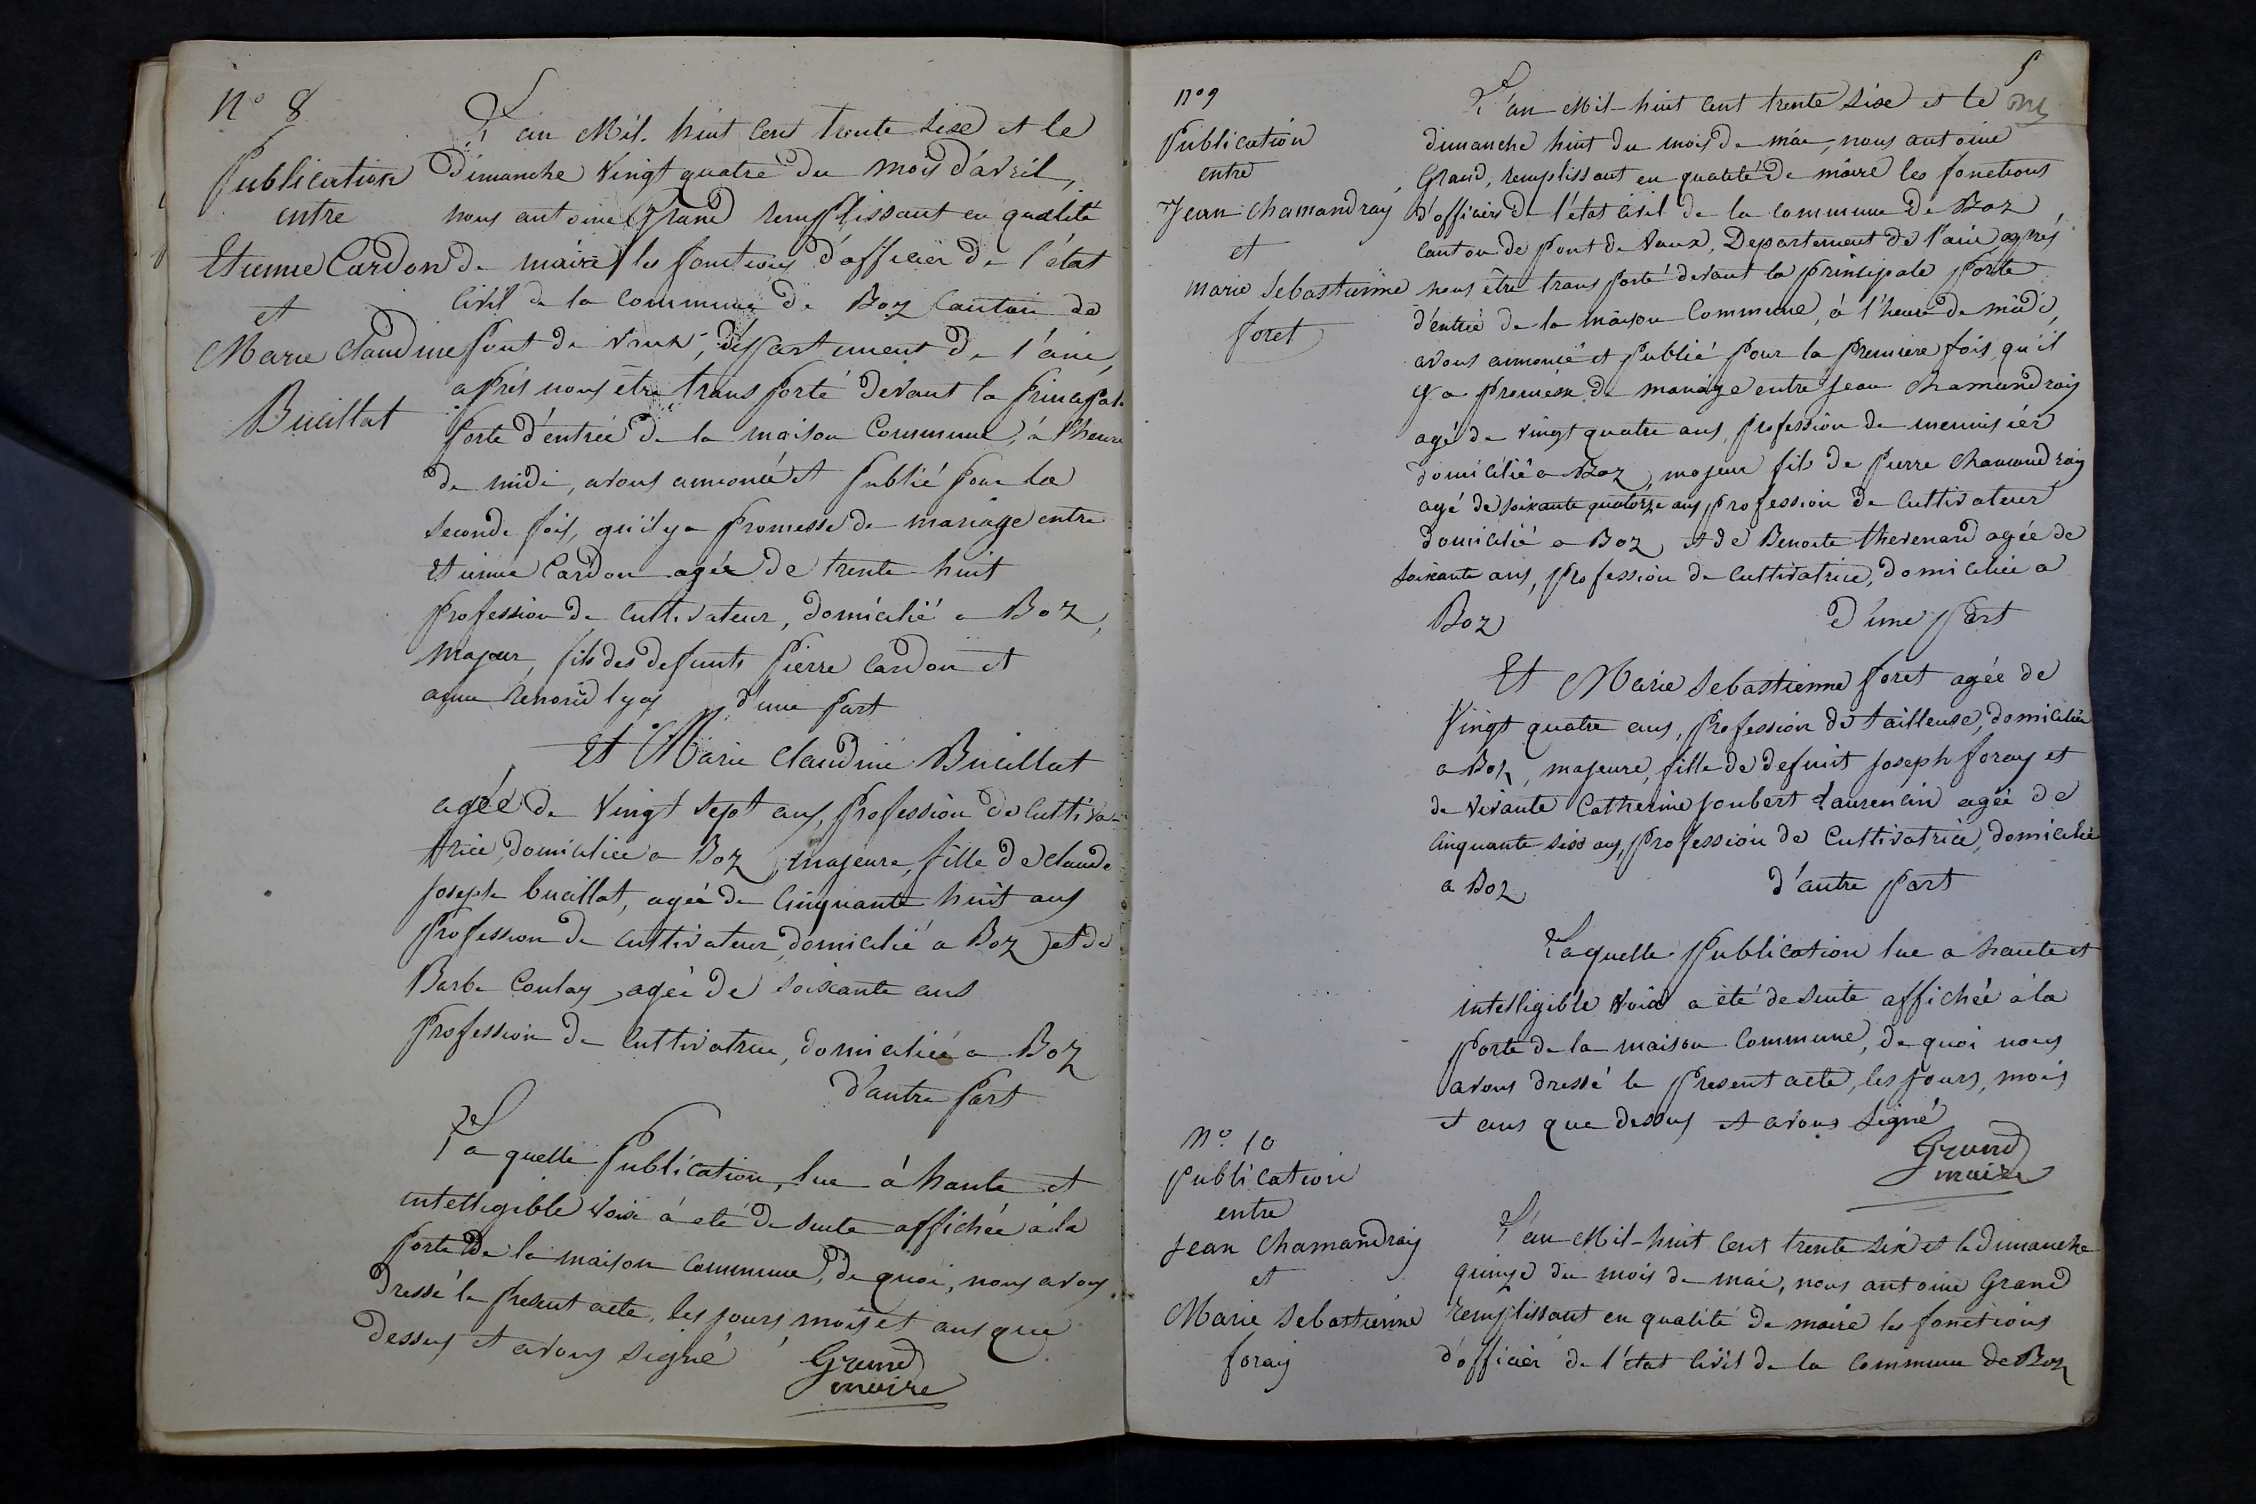 N° 8
Publication
entre
Etienne Cardon
et
Marie Claudine
Buaillat
L'an Mil-huit Cent trente Six et le
Dimanche Vingt quatre du mois d'avril,
nous antoine Grand remplissant en qualité
de maire les fonctions d'officier de l'état
Civil de la Commune de Boz Canton de
Pont de Vaux, département de l'ain,
après nous être transporté devant la principale
porte d'entrée de la maison Commune, à l'heure
de midi, avons annoncé et publié pour la
seconde fois, qu'il y a promesse de mariage entre
Etienne Cardon agée de trente huit
profession de Cultivateur, domicilié a Boz,
majeur, fils des defunts Pierre Cardon et
d'une part
Et Marie Claudine Buaillat
agée de Vingt Sept ans, profession de Cultiva-
trice, domiciliée a Boz, majeure, fille de Claude
Joseph buaillat, agée de Cinquante huit ans
profession de Cultivateur, domicilié a Boz et de
Barbe Coulas, agée de soixante ans
profession de Cultivatrice, domiciliée a Boz
d'autre part
Laquelle publication, lue à haute et
intelligible Voix à eté de suite affichée à la
porte de la maison Commune, de quoi, nous avons
dressé le présent acte, les jours, mois et ans que
dessus et avons signé
Grand
maire
5
n° 9
Publication
entre
Jean Chamandray
et
marie Sebastienne
foret
L'an Mil-huit Cent trente Six et le
dimanche huit du mois de mai, nous antoine
Grand, remplissant en qualité de maire les fonctions
d'officier de l'état Civil de la Commune de Boz
Canton de Pont de Vaux, Departement de l'ain après
nous être transporté devant la principale porte
d'entrée de la maison Commune, à l'heure de midi,
avons annoncé et publié pour la premiere fois qu'il
y a promesse de mariage entre Jean Chamandray
agé de vingt quatre ans, profession de menuisier
domicilié a Boz, majeur fils de Pierre Chamandray
agé de soixante quatorze ans profession de Cultivateur
domicilié a Boz et de Benoite thevenard agée de
soixante ans, profession de Cultivatrice, domiciliée a
Boz d'une part
Et Marie Sebastienne foret agée de
Vingt quatre ans, profession de tailleuse, domiciliée
a Boz, majeure, fille de defunt Joseph foray et
de vivante Catherine Joubert Laurencin agée de
Cinquante six ans, profession de Cultivatrice, domiciliée
a Boz d'autre part
Laquelle publication lue a haute et
intelligible Voix a été de suite affichée à la
porte de la maison Commune, de quoi nous
avons dressé le present acte, les jours, mois
et ans que dessus et avons signé
Grand
maire
N° 10
publication
entre
Jean Chamandray
et
Marie Sebastienne
foray
L'an Mil-huit Cent trente Six et le Dimanche
quinze du mois de mai, nous antoine Grand
remplissant en qualité de maire les fonctions
d'officier de l'état Civil de la Commune de Boz